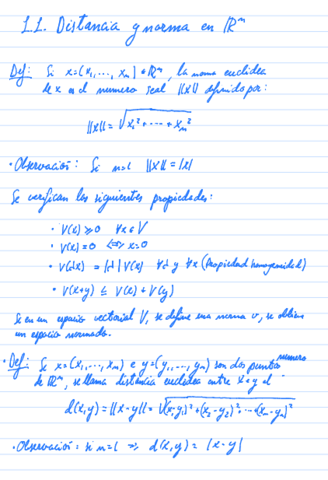 1.1. Distancia y norma en ℝⁿ
Def: Si x=(x₁,...,xₙ) ∈ ℝⁿ, la norma euclídea
de x es el numero real ||x|| definido por:
||x|| = √(x₁² + ... + xₙ²)
· Observación: Si n=1 ||x|| = |x|
Se verifican las siguientes propiedades:
· V(x) ≥ 0 ∀x ∈ V
· V(x) = 0 <=> x=0
· V(λx) = |λ| V(x) ∀λ y ∀x (Propiedad homogeneidad)
· V(x+y) ≤ V(x) + V(y)
Si en un espacio vectorial V, se define una norma v, se obtiene
un espacio normado.
· Def: Si x=(x₁,...,xₙ) e y=(y₁,...,yₙ) son dos puntos
de ℝⁿ, se llama distancia euclídea entre x e y al numero
d(x,y) = ||x-y|| = √((x₁-y₁)² + (x₂-y₂)² + ... + (xₙ-yₙ)²)
· Observación: si n=1 => d(x,y) = |x-y|